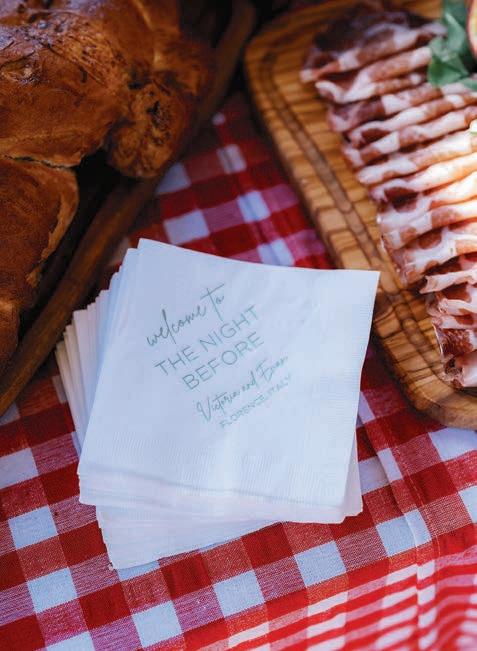 welcome to
THE NIGHT
BEFORE
Victoria and Evan
FLORENCE, ITALY